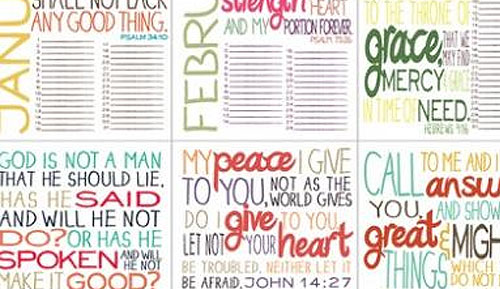 SHALL NOT LACK
ANY GOOD THING.
PSALM 34:10
JANU
strength HEART
AND MY PORTION FOREVER
PSALM 73:26
FEBRU
TO THE THRONE OF
grace, THAT WE
MAY FIND
MERCY & GRACE
IN TIME OF NEED.
HEBREWS 4:16
GOD IS NOT A MAN
THAT HE SHOULD LIE,
HAS HE SAID
AND WILL HE NOT
DO? OR HAS HE
SPOKEN AND WILL
HE NOT
MAKE IT GOOD?
MY peace I GIVE
TO YOU, NOT AS THE
WORLD GIVES
DO I give TO YOU.
LET NOT YOUR heart
BE TROUBLED, NEITHER LET IT
BE AFRAID. JOHN 14:27
CALL TO ME AND I
answ
YOU, AND SHOW
great & MIGH
THINGS WHICH